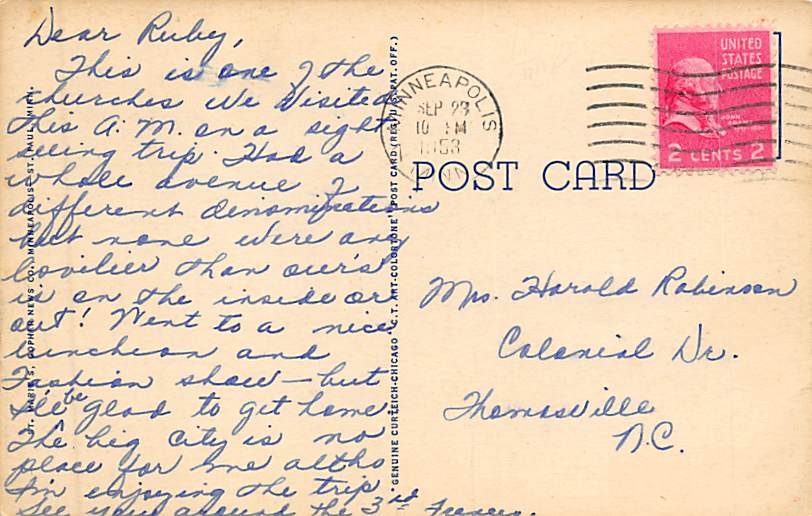 Dear Ruby,
This is one of the
churches we visited
this A.M. on a sight
seeing trip. Had a
whole avenue of
different denominations
but none were any
lovilier than our's
is on the inside or
out! Went to a nice
luncheon and
Fashion show — but
I'll be glad to get home
The big city is no
place for me altho
I'm enjoying the trip.
See you around the 3rd
ST. MARK'S, GOPHER NEWS CO., MINNEAPOLIS - ST. PAUL, MINN.
GENUINE CURTEICH-CHICAGO "C.T. ART-COLORTONE" POST CARD (REG. U.S. PAT. OFF.)
MINNEAPOLIS
SEP 23
10 PM
1953
MINN.
UNITED
STATES
POSTAGE
JOHN
ADAMS
2 CENTS 2
POST CARD
Mrs. Harold Robinson
Colonial Dr.
Thomasville
N.C.